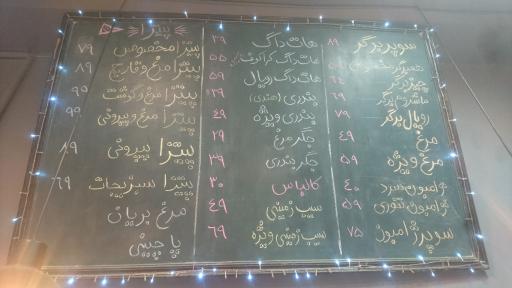 سوپر برگر ۸۹
رویال برگر ۷۹
مرغ ۴۹
مرغ ویژه ۵۹
ژامبون سرد ۴۰
ژامبون تنوری ۵۹
سوپر ژامبون ۷۵
هات داگ ۳۹
هات داگ ۵۵
هات داگ رویال ۵۹
بندری (هندی) ۳۹
بندری ویژه ۴۹
جگر مرغ ۲۹
جگر بندری ۳۹
کالباس ۳۰
سیب زمینی ۴۹
سیب زمینی ویژه ۶۹
پیتزا
پیتزا مخصوص ۷۹
پیتزا مرغ و قارچ ۸۹
پیتزا مرغ و گوشت ۹۹
پیتزا مرغ و پپرونی ۹۹
پیتزا پپرونی ۸۹
پیتزا سبزیجات ۶۹
مرغ بریان
پاچینی